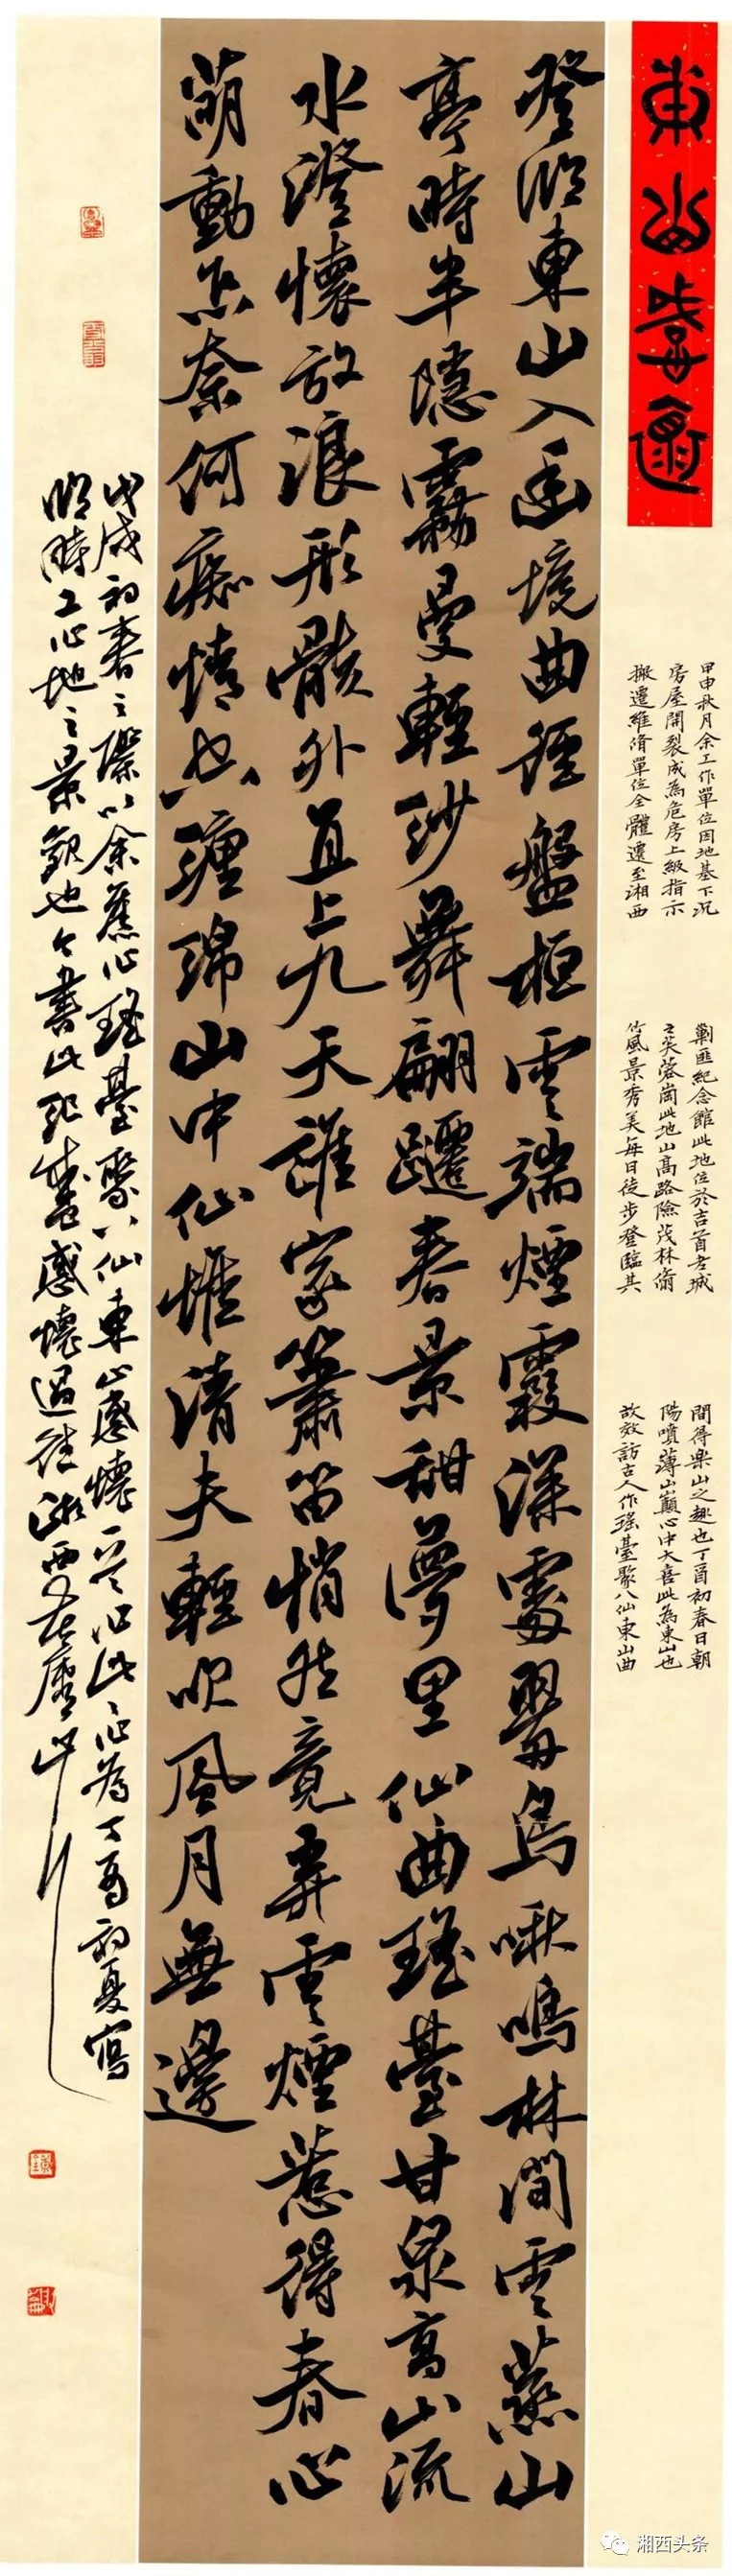 東山嘗遊
甲申秋月余工作單位因地基下沉
房屋開裂成為危房上級指示
搬遷維脩單位全體遷至湘西
剿匪紀念館此地位於吉首老城
之芙蓉崗此地山高路險茂林脩
竹風景秀美每日徒步登臨其
間得樂山之趣也丁酉初春日朝
陽噴薄山巔心中大喜此為東山也
故效訪古人作瑤臺聚八仙東山曲
登臨東山入幽境曲徑盤桓雲端煙霞深處翠鳥啾鳴林澗雲蒸山
亭時半隱霧曼輕紗舞翩躚春景甜夢里仙曲瑤臺甘泉高山流
水澄懷放浪形骸外直上九天誰家簫笛悄然竟弄雲煙惹得春心
萌動怎奈何痴情也纏綿山中仙惟清夫輕吹風月無邊
戊戌初春之際以余舊作瑤臺聚八仙東山感懷一首作此之作為丁酉初夏寫
臨時工作地之景觀也今書此記感懷過往湘西
湘西头条